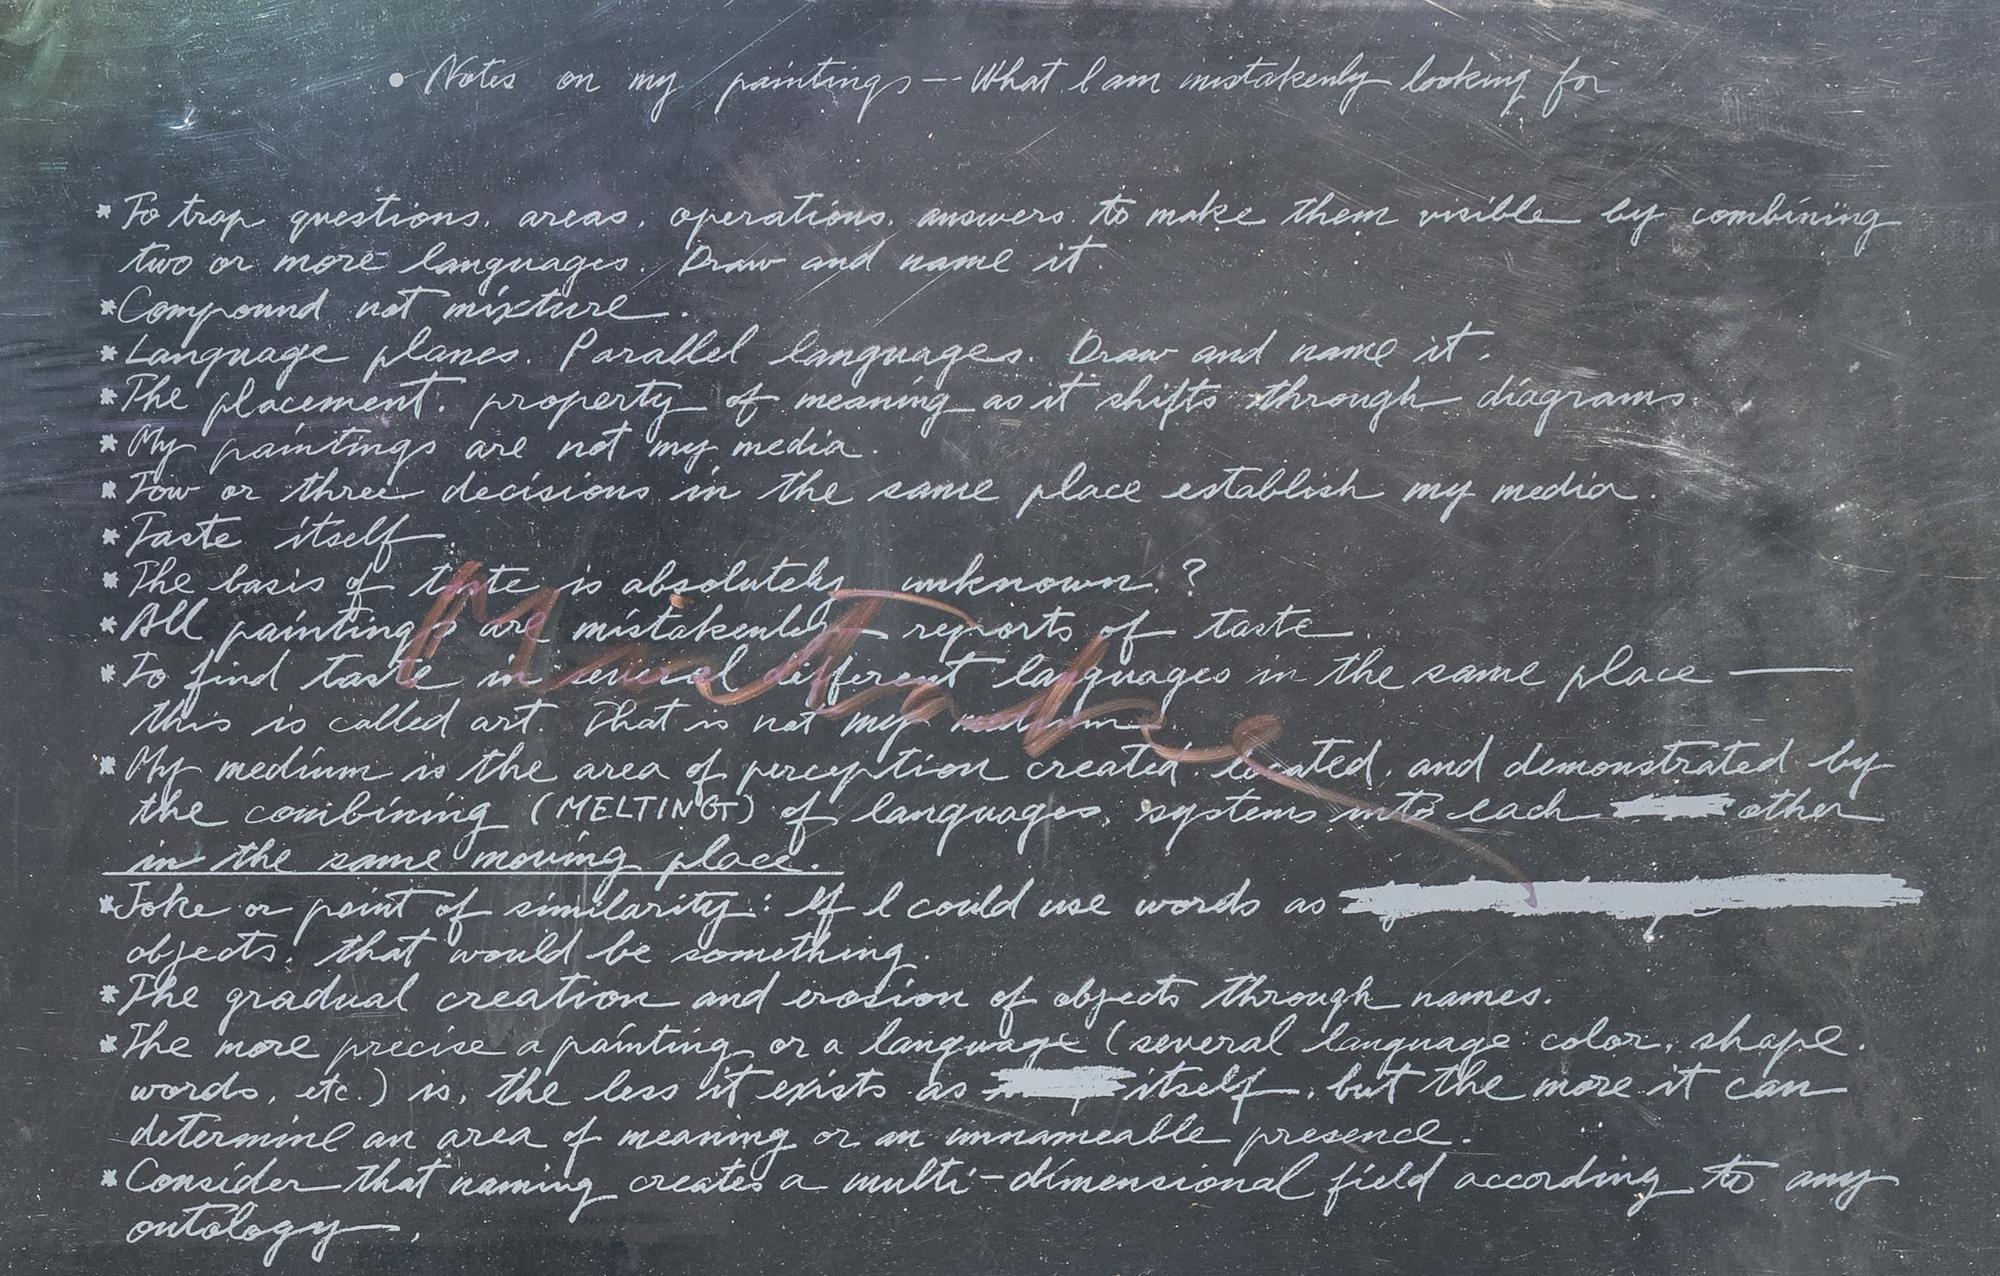 • Notes on my paintings -- What I am mistakenly looking for
* To trap questions, areas, operations, answers to make them visible by combining
two or more languages. Draw and name it.
* Compound not mixture.
* Language planes. Parallel languages. Draw and name it.
* The placement, property of meaning as it shifts through diagrams.
* My paintings are not my media.
* Tow or three decisions in the same place establish my media.
* Taste itself.
* The basis of taste is absolutely unknown.?
* All paintings are mistakenly reports of taste.
Mistake
* To find taste in several different languages in the same place —
this is called art. That is not my medium.
* My medium is the area of perception created, located, and demonstrated by
the combining (MELTING) of languages, systems into each other
in the same moving place.
* Joke or point of similarity: If I could use words as
objects, that would be something.
* The gradual creation and erosion of objects through names.
* The more precise a painting or a language (several language: color, shape,
words, etc.) is, the less it exists as itself, but the more it can
determine an area of meaning or an unnameable presence.
* Consider that naming creates a multi-dimensional field according to any
ontology.